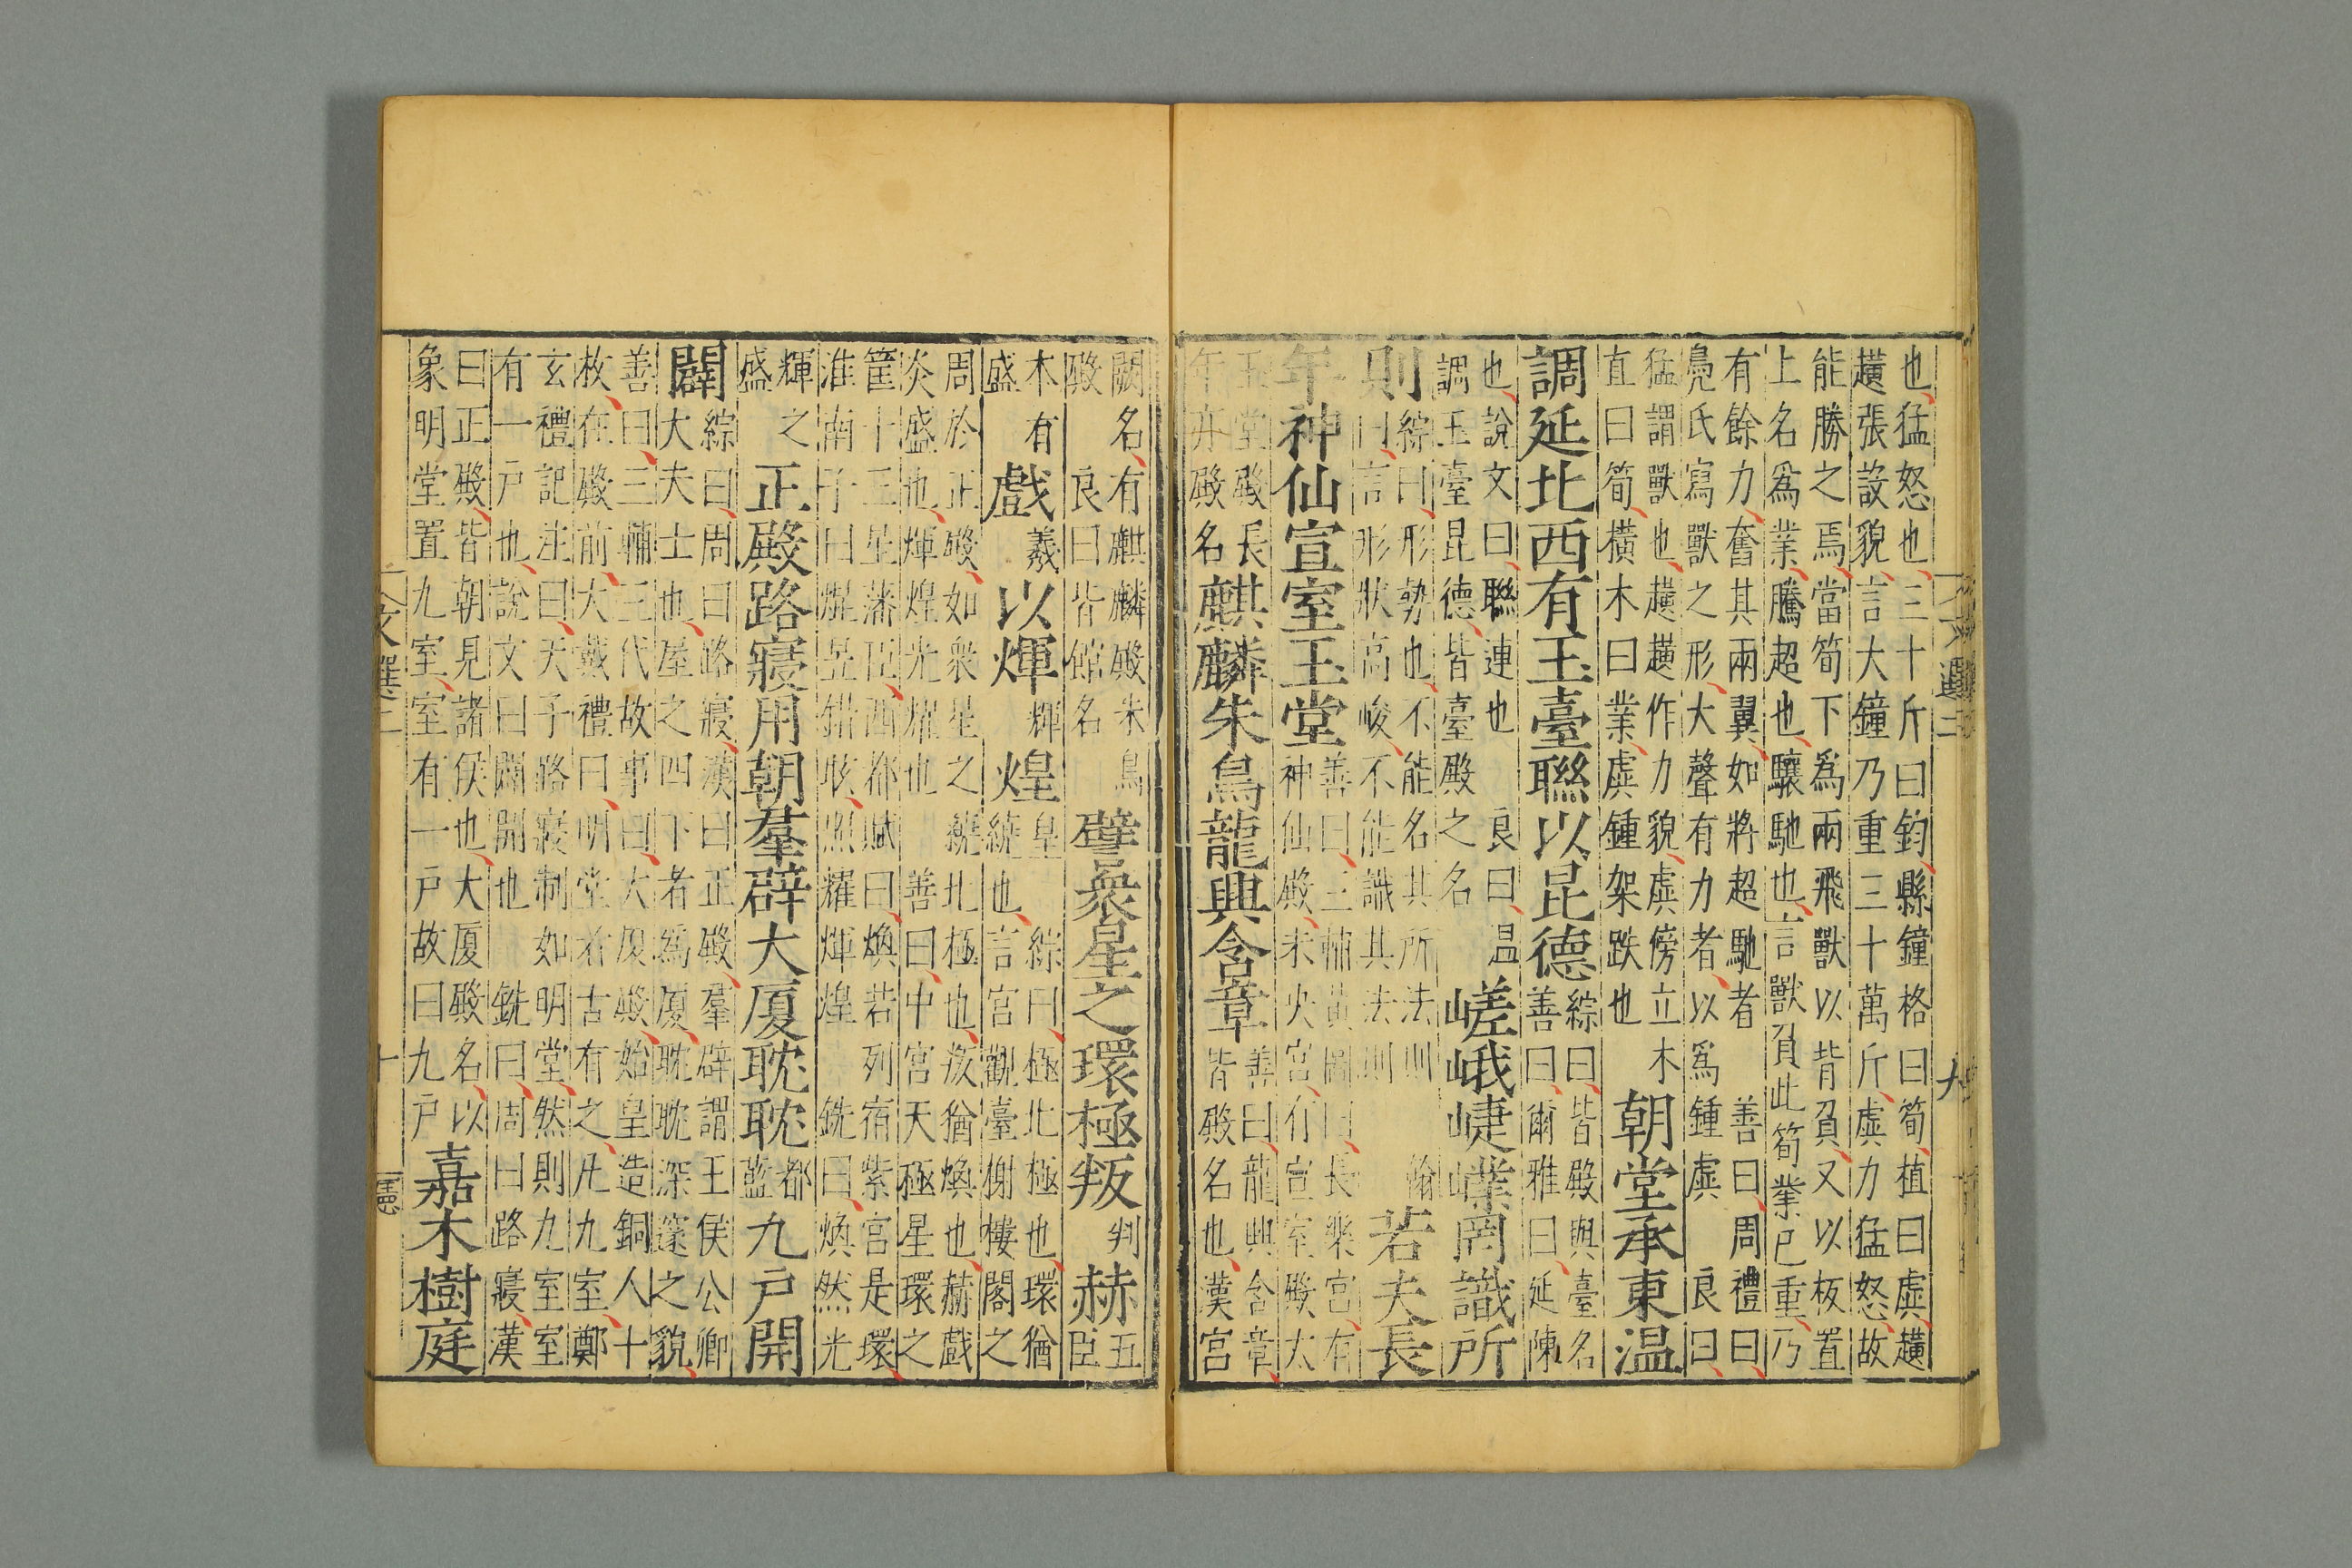 也猛怒也三十斤曰鈞縣鐘格曰筍植曰虡趪
趪張設貌言大鐘乃重三十萬斤虡力猛怒故
能勝之焉當筍下為兩飛獸以背負又以板置
上名為業騰超也驤馳也言獸負此筍業已重乃
有餘力奮其兩翼如將超馳者 善曰周禮曰
鳧氏寫獸之形大聲有力者以為鍾虡 良曰
猛謂獸也趪趪作力貌虡傍立木
直曰筍橫木曰業虡鍾架跌也
朝堂承東温
調延北西有玉臺聯以昆德
綜曰皆殿與臺名
善曰爾雅曰延陳
也說文曰聯連也 良曰温
調玉臺昆德皆臺殿之名
嵯峨崨嶫罔識所
則
綜曰形勢也不能名其所法則 翰
曰言形狀高峻不能識其法則
若夫長
年神仙宣室玉堂
善曰三輔黃圖曰長樂宮有
神仙殿未央宮有宣室殿太
玉堂殿長
年亦殿名
麒麟朱鳥龍興含章
善曰龍興含章
皆殿名也漢宮
闕名有麒麟殿朱鳥
殿 良曰皆館名
譬衆星之環極叛
判
赫
五
臣
本有
盛
戲
羲
以煇
輝
煌
皇 綜曰極北極也環猶
繞也言宮觀臺榭樓閣之
周於正殿如衆星之繞北極也叛猶煥也赫戲
炎盛也煇煌光耀也 善曰中宮天極星環之
筐十二星藩臣西都賦曰煥若列宿紫宮是環
淮南子曰焜昱錯眩照耀煇煌 銑曰煥然光
輝之
盛
正殿路寢用朝羣辟大厦耽耽
都
藍
九戶開
闢
綜曰周曰路寢漢曰正殿羣辟謂王侯公卿
大夫士也屋之四下者為厦耽耽深邃之貌
善曰三輔三代故事曰大厦殿始皇造銅人十
枚在殿前大戴禮曰明堂者古有之凡九室鄭
玄禮記注曰天子路寢制如明堂然則九室室
有一戶也說文曰闢開也 銑曰周曰路寢漢
曰正殿皆朝見諸侯也大厦殿名以
象明堂置九室室有一戶故曰九戶
嘉木樹庭